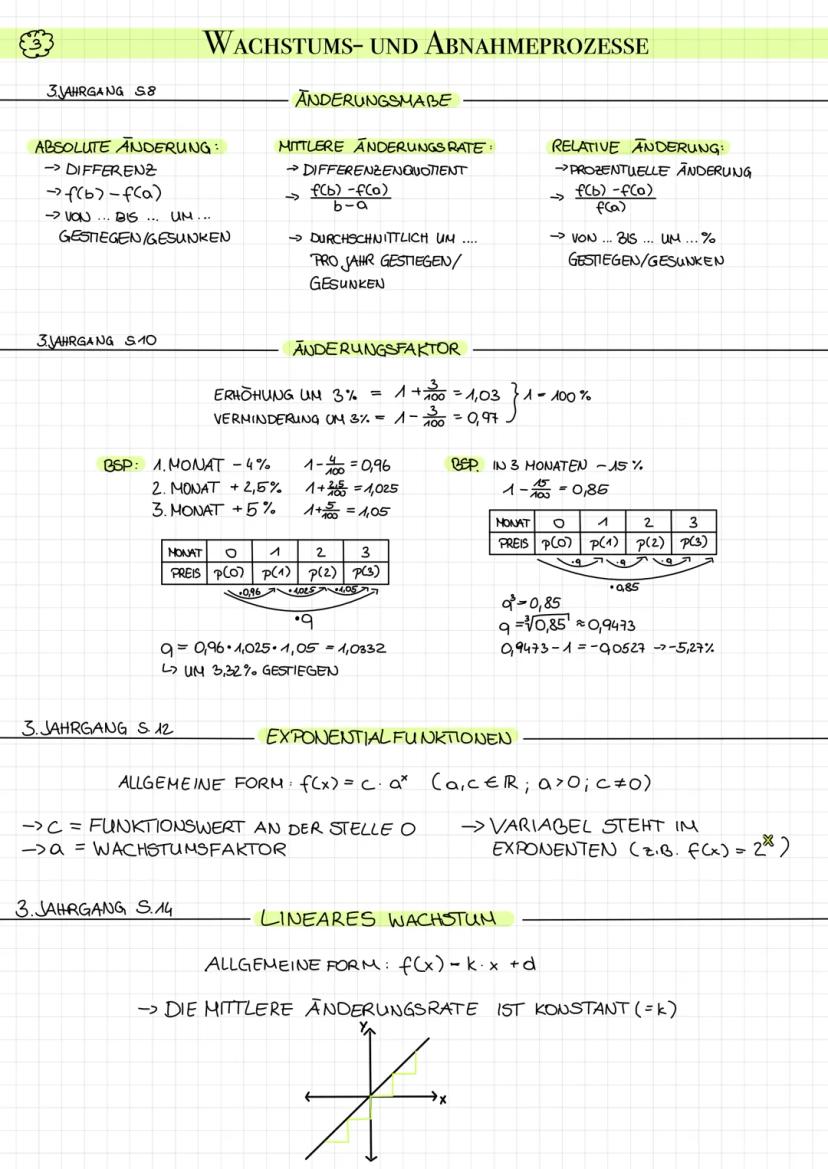 3
WACHSTUMS- UND ABNAHMEPROZESSE
3.JAHRGANG S.8
ÄNDERUNGSMAßE
ABSOLUTE ÄNDERUNG:
→ DIFFERENZ
→ f(b) - f(a)
→ VON ... BIS ... UM ...
GESTIEGEN/GESUNKEN
MITTLERE ÄNDERUNGSRATE:
→ DIFFERENZENQUOTIENT
→ f(b) - f(a) / b-a
→ DURCHSCHNITTLICH UM ....
PRO JAHR GESTIEGEN/
GESUNKEN
RELATIVE ÄNDERUNG:
→ PROZENTUELLE ÄNDERUNG
→ f(b) - f(a) / f(a)
→ VON ... BIS ... UM ... %
GESTIEGEN/GESUNKEN
3.JAHRGANG S.10
ÄNDERUNGSFAKTOR
ERHÖHUNG UM 3% = 1 + 3/100 = 1,03 } 1 = 100%
VERMINDERUNG UM 3% = 1 - 3/100 = 0,97
BSP: 1. MONAT - 4% 1 - 4/100 = 0,96
2. MONAT + 2,5% 1 + 2,5/100 = 1,025
3. MONAT + 5% 1 + 5/100 = 1,05
MONAT 0 1 2 3
PREIS p(0) p(1) p(2) p(3)
·0,96 ·1,025 ·1,05
·q
q = 0,96 · 1,025 · 1,05 = 1,0332
↳ UM 3,32% GESTIEGEN
BSP. IN 3 MONATEN - 15%
1 - 15/100 = 0,85
MONAT 0 1 2 3
PREIS p(0) p(1) p(2) p(3)
·q ·q ·q
·0,85
q³ = 0,85
q = ³√0,85 ≈ 0,9473
0,9473 - 1 = -0,0527 → -5,27%
3. JAHRGANG S. 12
EXPONENTIALFUNKTIONEN
ALLGEMEINE FORM: f(x) = c · aˣ (a,c ∈ ℝ ; a > 0 ; c ≠ 0)
→ c = FUNKTIONSWERT AN DER STELLE 0
→ a = WACHSTUMSFAKTOR
→ VARIABEL STEHT IM
EXPONENTEN (z.B. f(x) = 2ˣ)
3. JAHRGANG S. 14
LINEARES WACHSTUM
ALLGEMEINE FORM: f(x) = k · x + d
→ DIE MITTLERE ÄNDERUNGSRATE IST KONSTANT (= k)
y
x